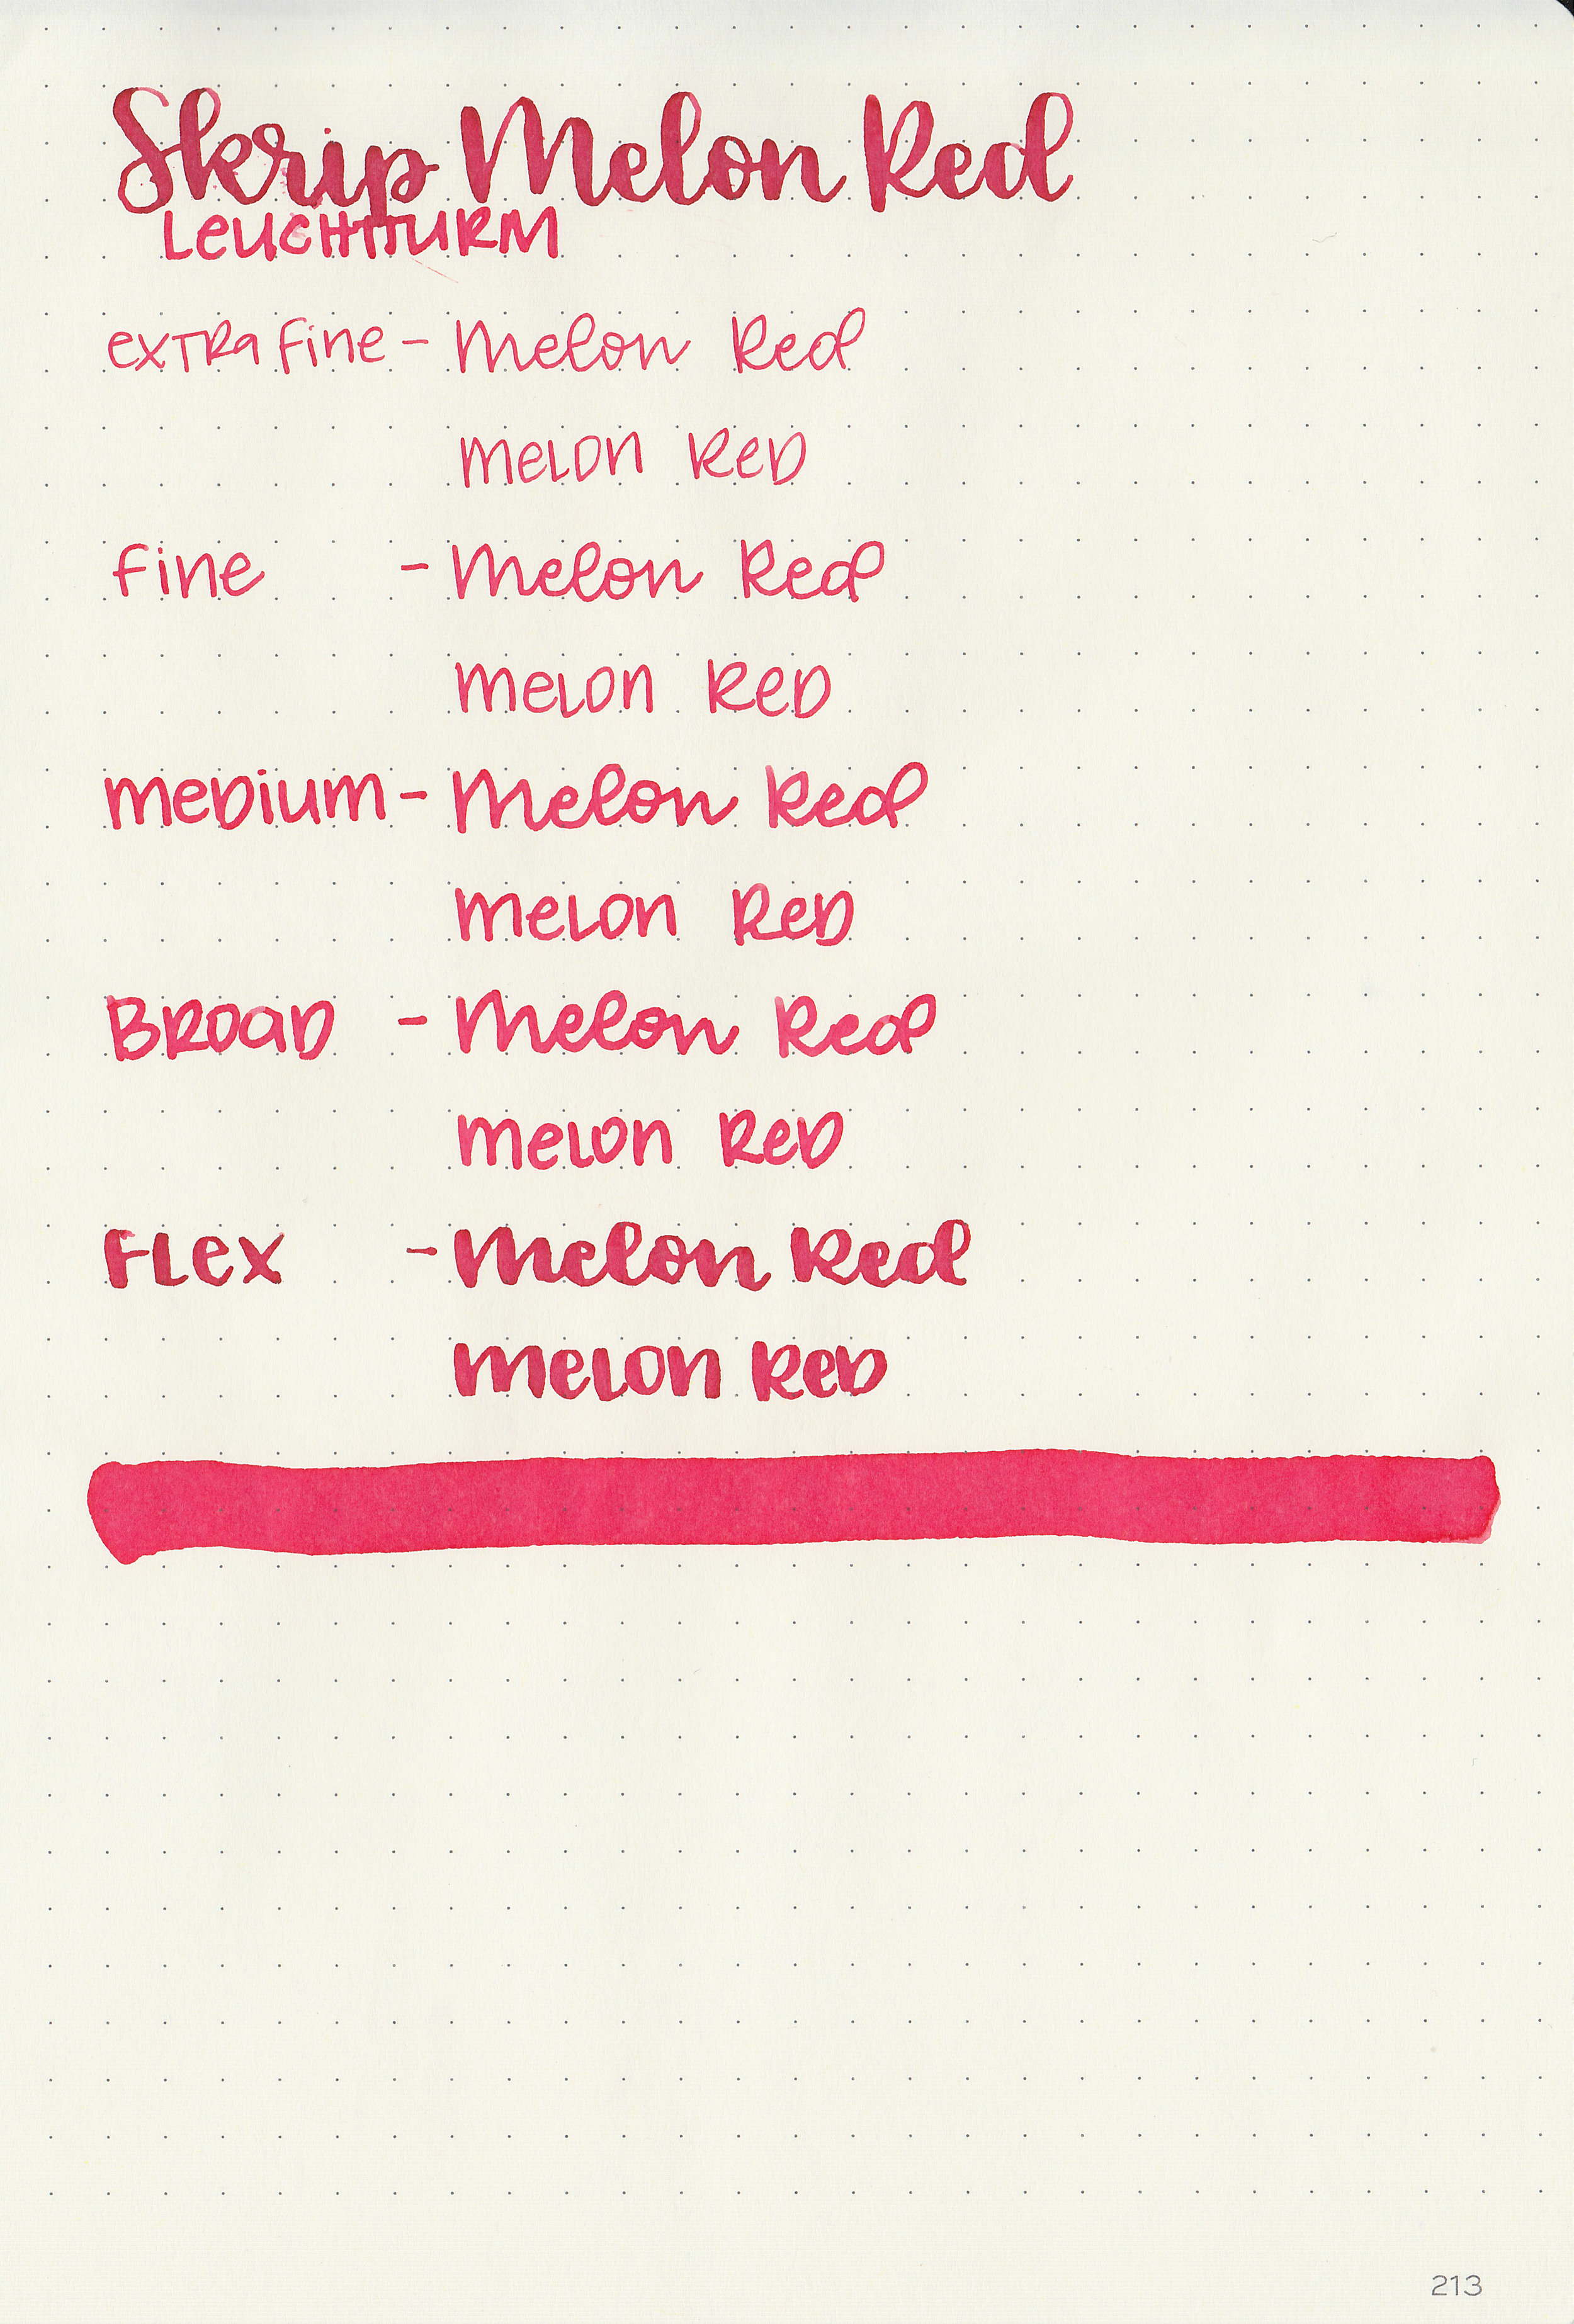 Skrip Melon Red
LEUCHTTURM
exTRa Fine - Melon Red
meLon ReD
Fine - Melon Red
meLon ReD
meDium - Melon Red
meLon ReD
BROaD - Melon Red
meLon ReD
FLex - Melon Red
meLon ReD
213